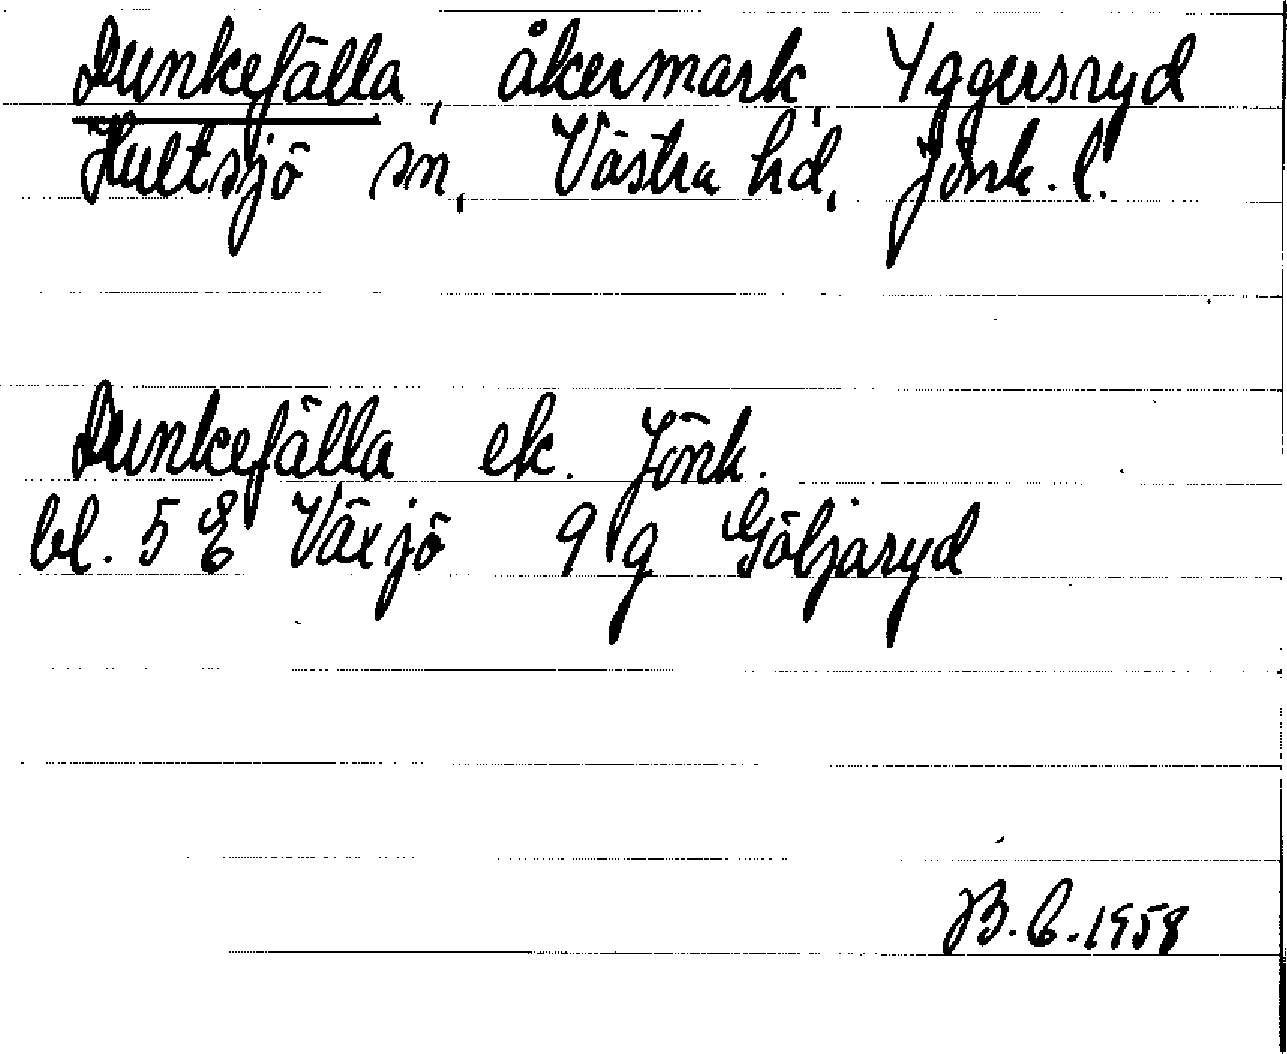 Dunkefälla, åkermark, Yggersryd
Hultsjö sn, Västra hd, Jönk. l.
Dunkefälla ek. Jönk.
bl. 5 E Växjö 9 g Göljaryd
B.C. 1958